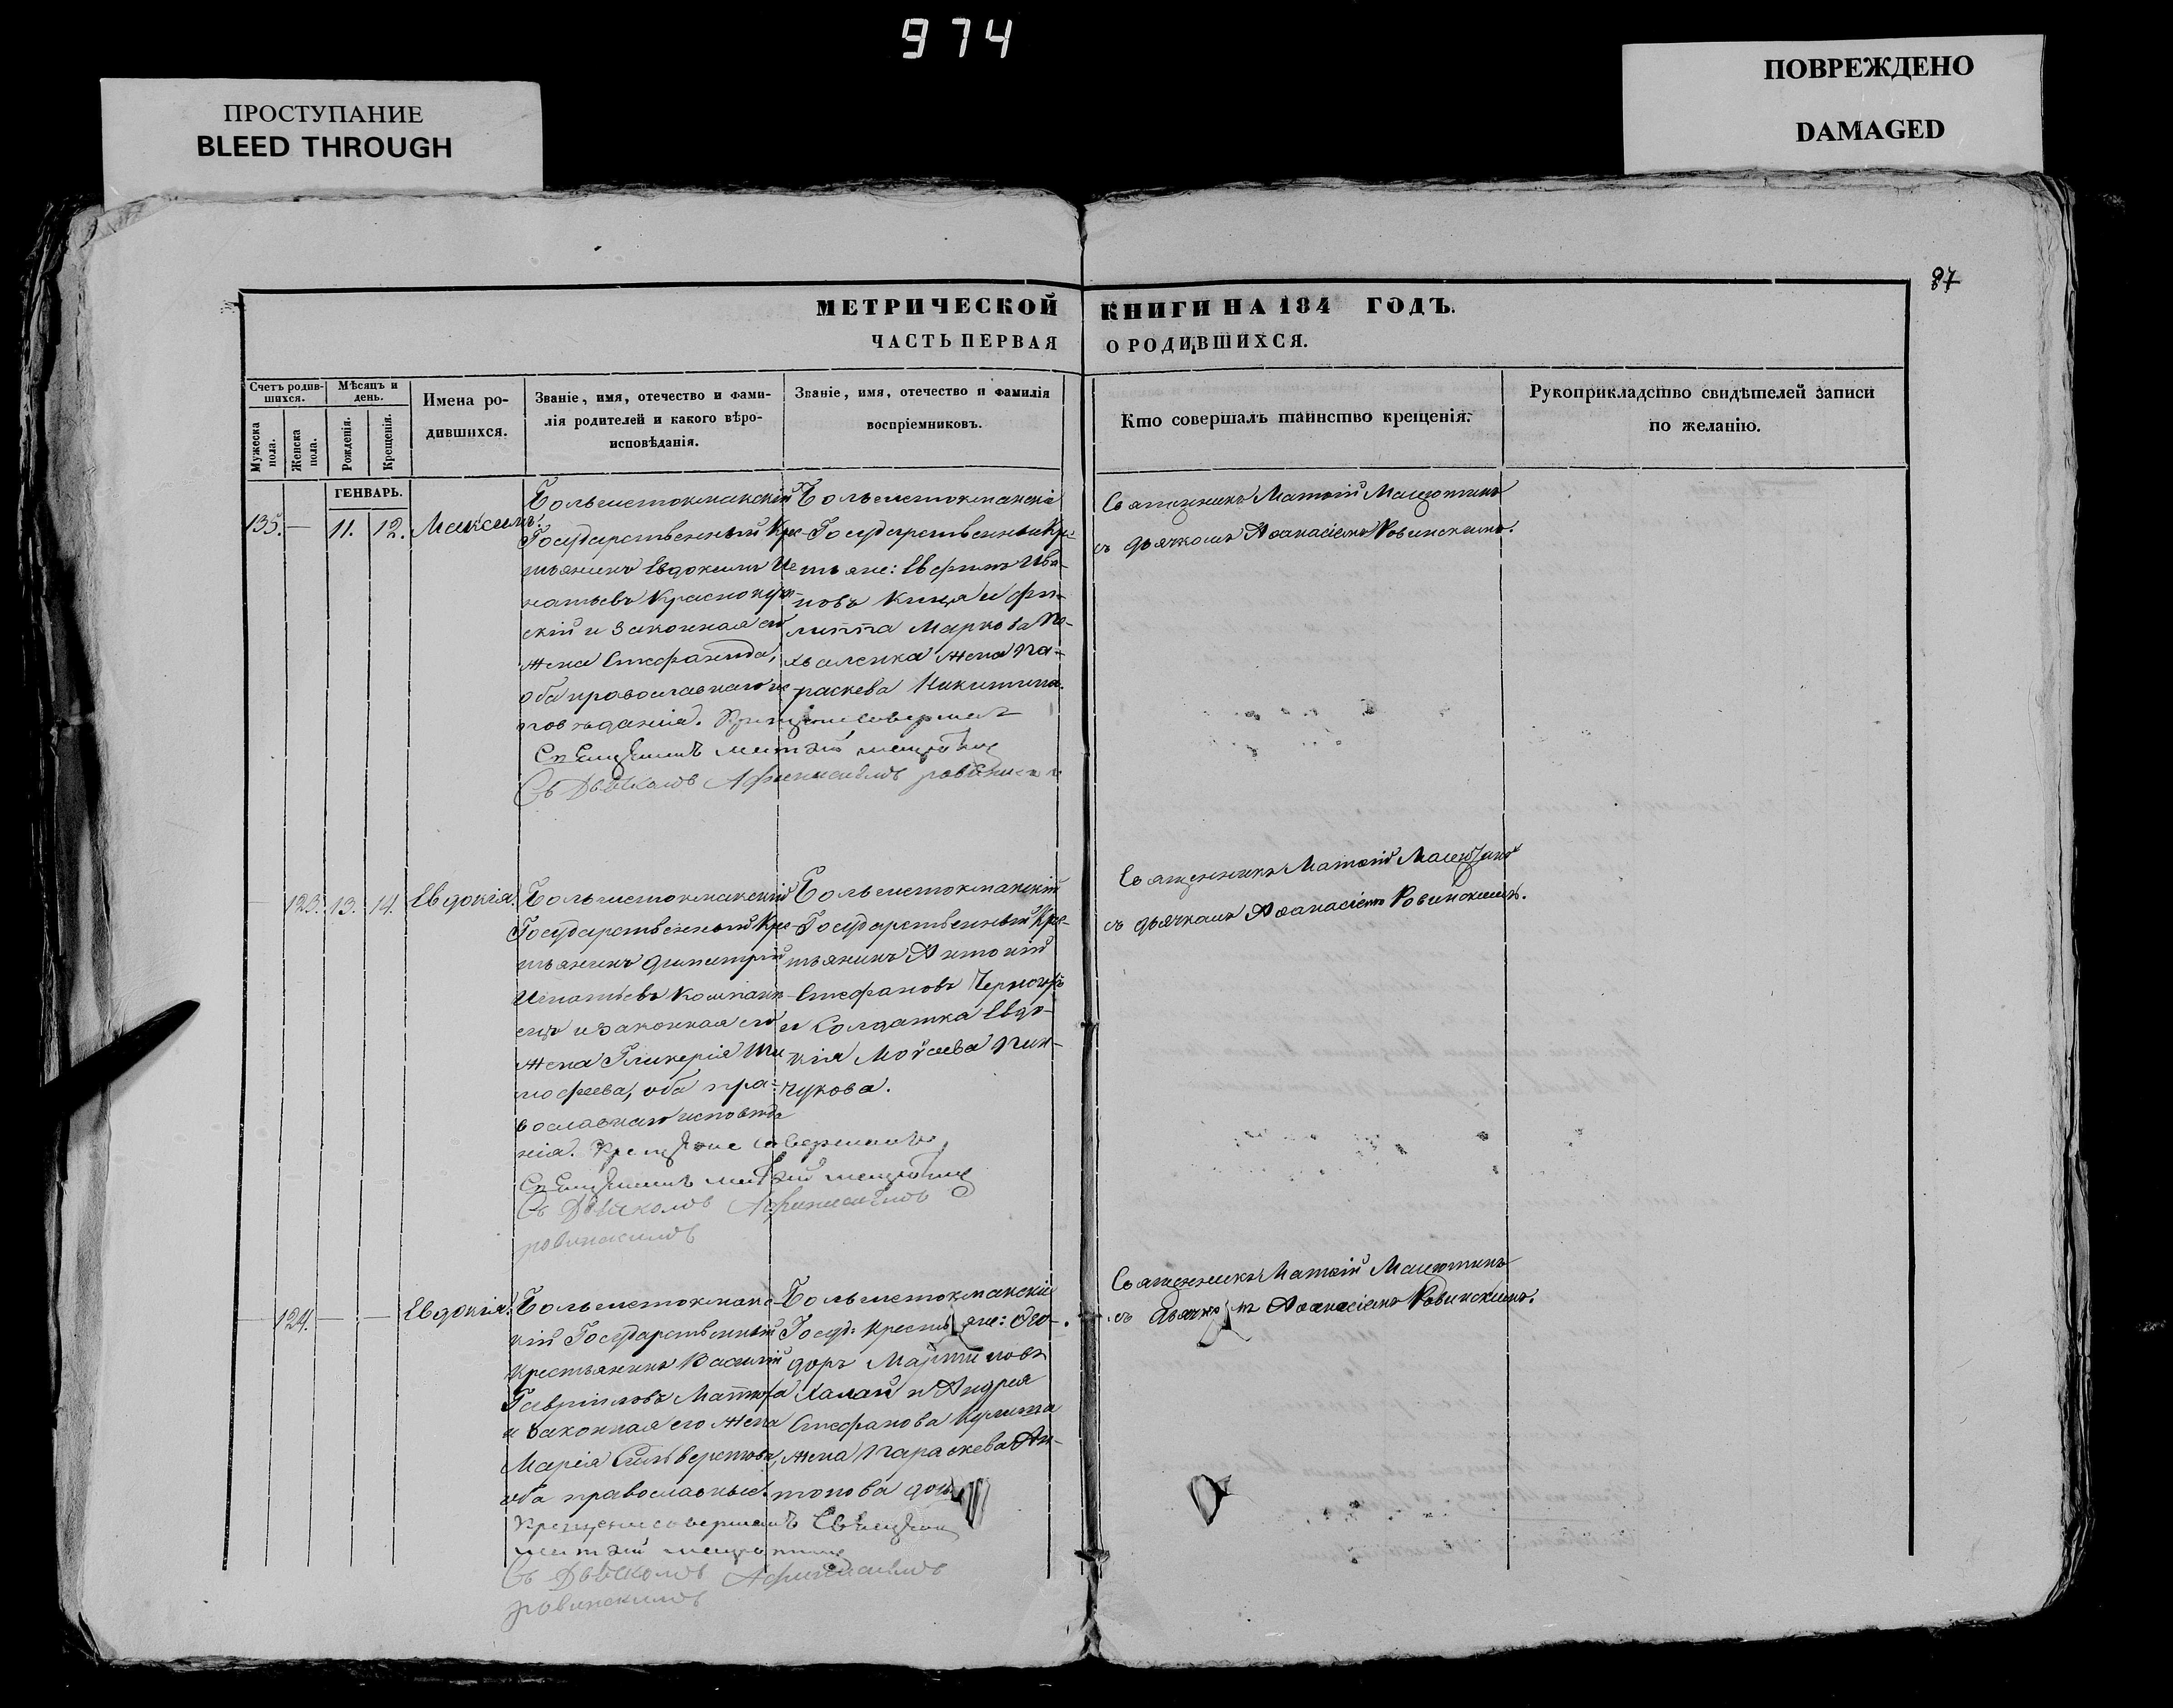 974
ПРОСТУПАНИЕ
BLEED THROUGH
ПОВРЕЖДЕНО
DAMAGED
87
МЕТРИЧЕСКОЙ КНИГИ НА 184 ГОДЪ.
ЧАСТЬ ПЕРВАЯ О РОДИВШИХСЯ.
Счетъ родив-
шихся.
Мужеска
пола.
Женска
пола.
Мѣсяцъ и
день.
Рожденія.
Крещенія.
Имена ро-
дившихся.
Званіе, имя, отечество и фами-
лія родителей и какого вѣро-
исповѣданія.
Званіе, имя, отечество и фамилія
воспріемниковъ.
Кто совершалъ таинство крещенія.
Рукоприкладство свидѣтелей записи
по желанію.
ГЕНВАРЬ.
135. — 11. 12. Максимъ.
Большетокмакскій
Государственный Кре-
стьянинъ Евдокимъ Иг
натьевъ Краснокут-
скій и законная его
жена Стефанида,
оба православнаго ис
повѣданія. Крещеніе совершал
Священникъ
Съ Дьячкомъ
Большетокмакскіе
Государственные Кре-
стьяне: Евфимъ Ива-
новъ и Фи-
липпа Маркова По-
жена Па-
раскева Никитина.
Священникъ Матѳій
съ дьячкомъ Аѳанасіемъ Ровинскимъ.
123. 13. 14. Евдокія.
Большетокмакскій
Государственный Кре-
стьянинъ Димитрій
Игнатьевъ
и законная его
жена Гликерія Ти
мофеева, оба пра-
вославнаго исповѣда
нія. Крещеніе совершалъ
Священникъ
Съ Дьячкомъ
ровинскимъ
Большетокмакскій
Государственный Кре-
стьянинъ Антоній
Стефановъ
и Солдатка Евдо-
кія Моѵсеева Пин-
чукова.
Священникъ Матѳій
съ дьячкомъ Аѳанасіемъ Ровинскимъ.
124. — — Евдокія.
Большетокмакс-
кій Государственный
Крестьянинъ Василій
Гавріиловъ
и законная его жена
Марія Сильверстова,
оба православные.
Крещеніе совершалъ Священник
Съ Дьячкомъ
ровинскимъ
Большетокмакскіе
Госуд: Крестьяне: Ѳео-
доръ Мартиновъ
и Андрея
Стефанова
жена Параскева Ан-
тонова дочь
Священникъ Матѳій
съ Дьячкомъ Аѳанасіемъ Ровинскимъ.